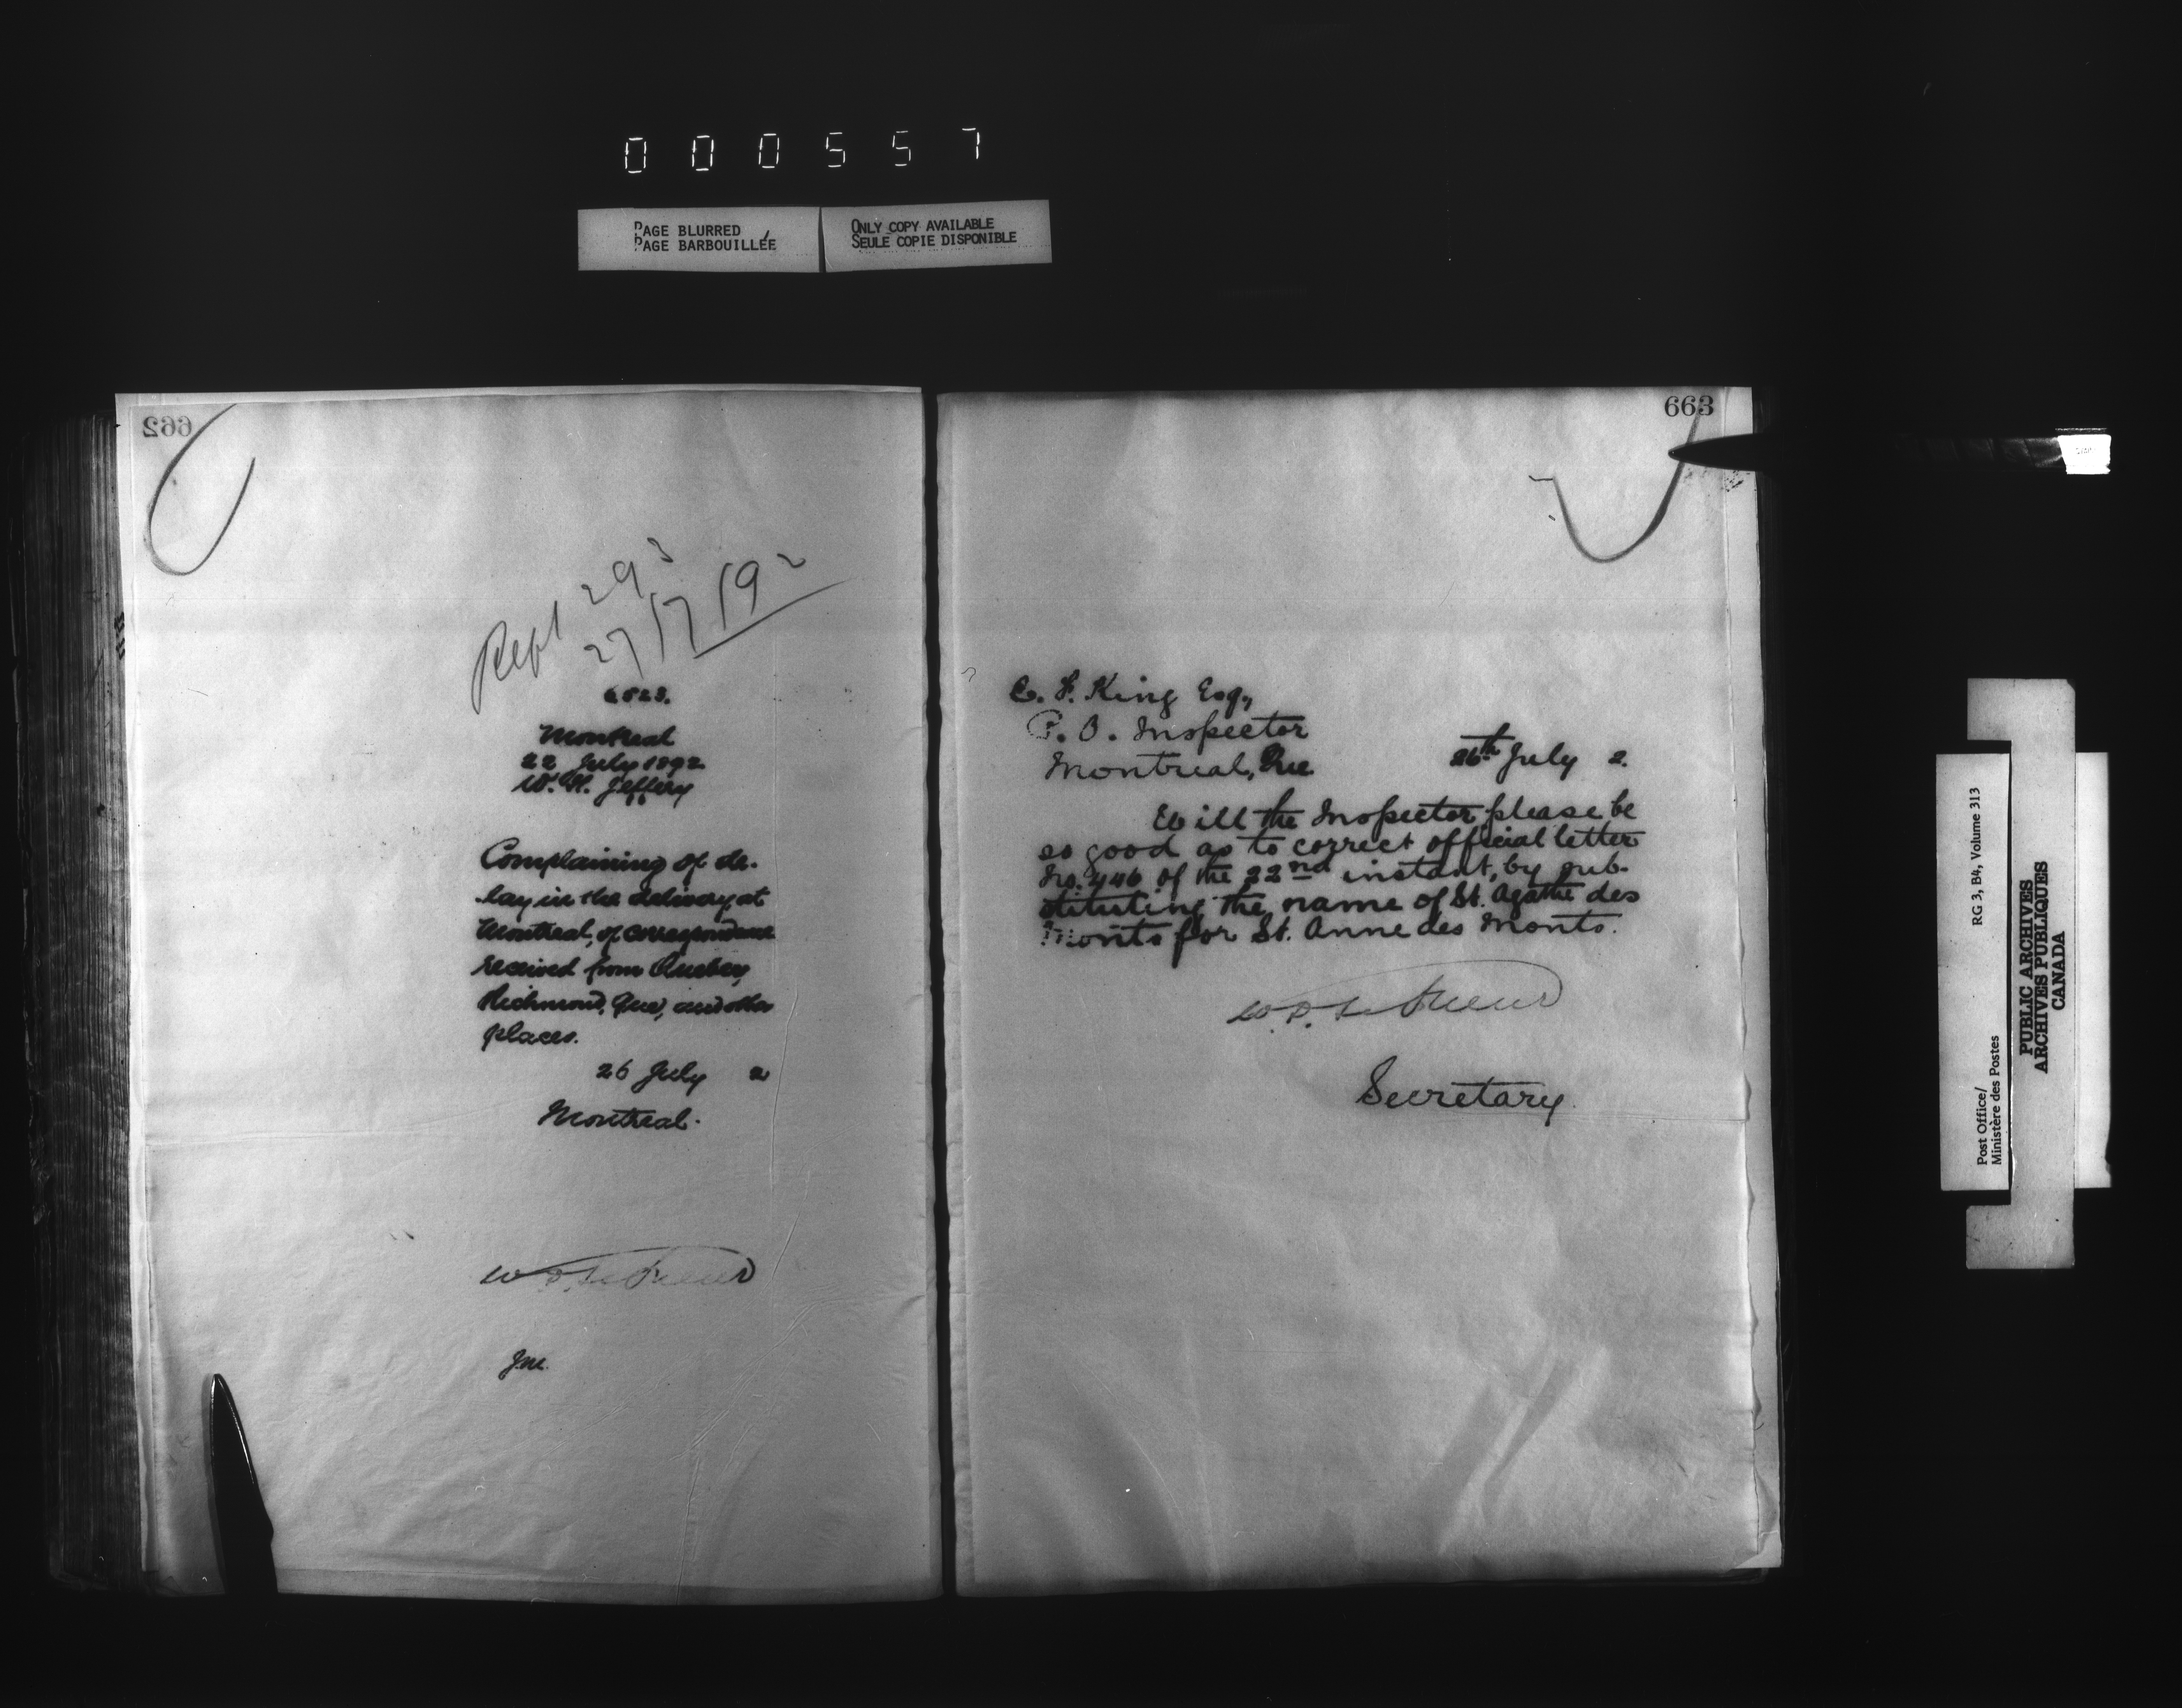 000557
PAGE BLURRED
PAGE BARBOUILLÉE
ONLY COPY AVAILABLE
SEULE COPIE DISPONIBLE
662
Rept 293
27/7/92
Montreal
22 July 1892
W. H. Jeffery
Complaining of de-
lay in the delivery at
Montreal, of correspondence
received from Quebec,
Richmond, Que, and other
places.
26 July 2
Montreal.
W. D. LeSueur
J.M.
663
C. F. King Esq,
P. O. Inspector
Montreal, Que
26th July 2.
Will the Inspector please be
so good as to correct official letter
No. 446 of the 22nd instant, by sub-
stituting the name of St. Agathe des
Monts for St. Anne des Monts.
W. D. LeSueur
Secretary.
Post Office/
Ministère des Postes
RG 3, B4, Volume 313
PUBLIC ARCHIVES
ARCHIVES PUBLIQUES
CANADA